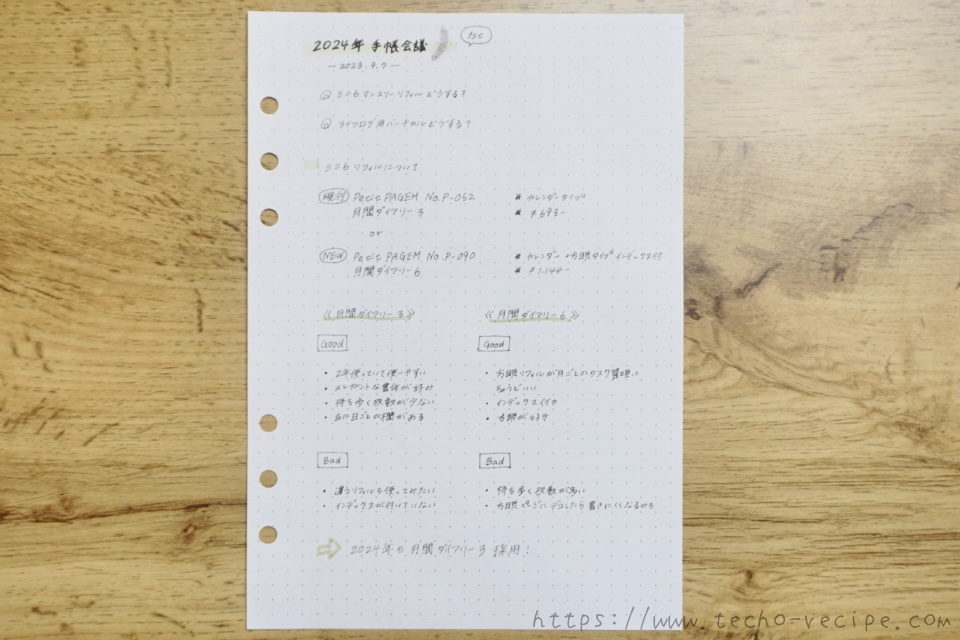 2024年 手帳会議
1st
— 2023.9.7 —
ミニ6マンスリーリフィルどうする?
ライフログ用バーチカルどうする?
ミニ6リフィルについて
現行 Petit PAGEM No.P-052 * カレンダータイプ
月間ダイアリー3 * ¥693-
or
NEW Petit PAGEM No.P-090 * カレンダー+方眼タイプ インデックス付
月間ダイアリー6 * ¥1,144-
《月間ダイアリー3》 《月間ダイアリー6》
Good Good
・2年使っていて使いやすい ・方眼リフィルが月ごとのタスク管理に
・エレガントな書体が好み ちょうどいい
・持ち歩く枚数が少ない ・インデックス付き
・日ごとの欄がある ・方眼が好き
Bad Bad
・違うリフィルも使ってみたい ・持ち歩く枚数が多い
・インデックスが付いていない ・方眼ページにデコしたら書きにくくなるかも
⇒ 2024年も月間ダイアリー3 採用!
https://www.techo-recipe.com